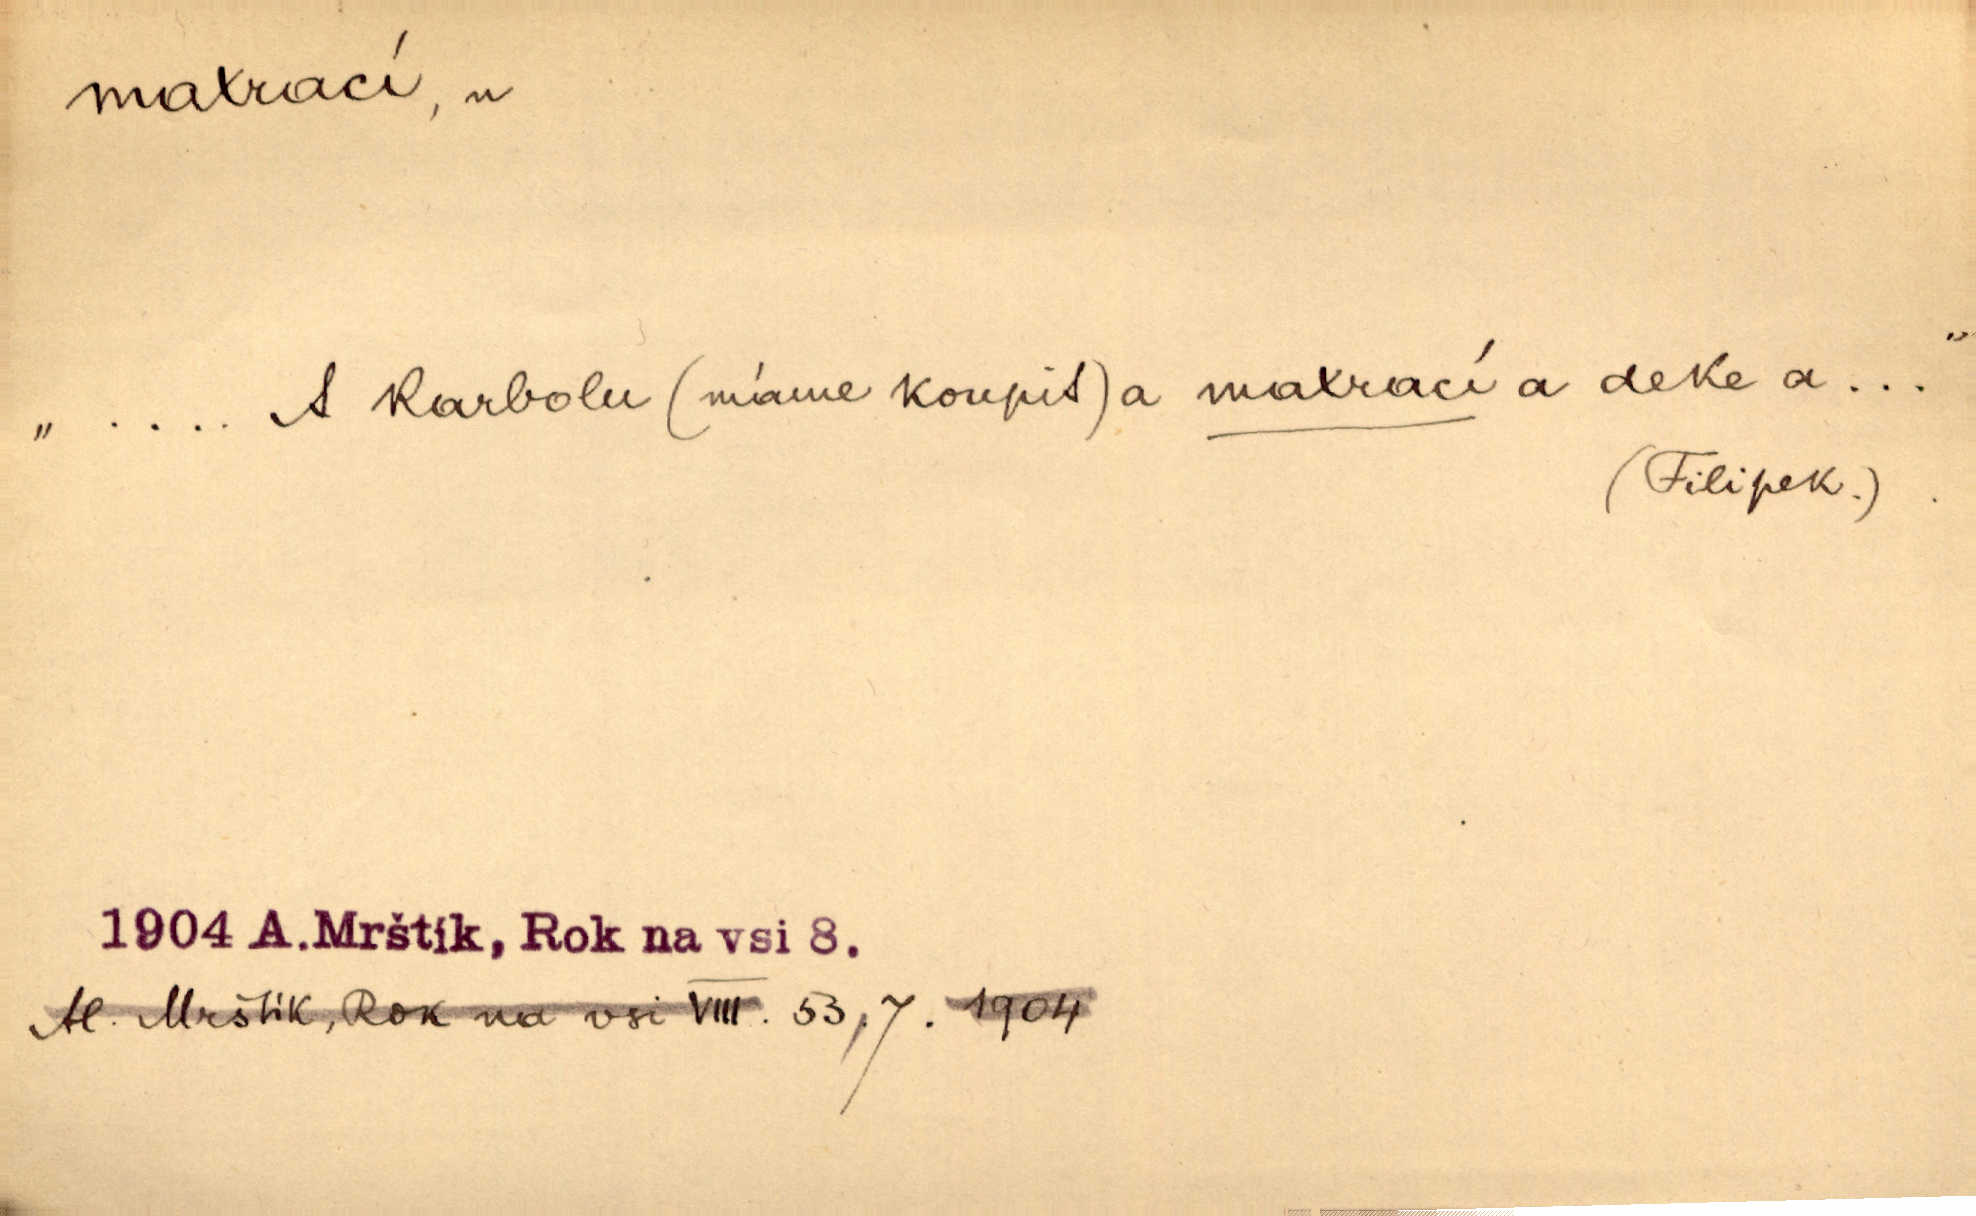 matrací, n
„ .... A karbolu (máme koupit) a matrací a deke a ..."
(Filipek.)
1904 A.Mrštík, Rok na vsi 8.
Al. Mrštík, Rok na vsi VIII. 53,7. 1904